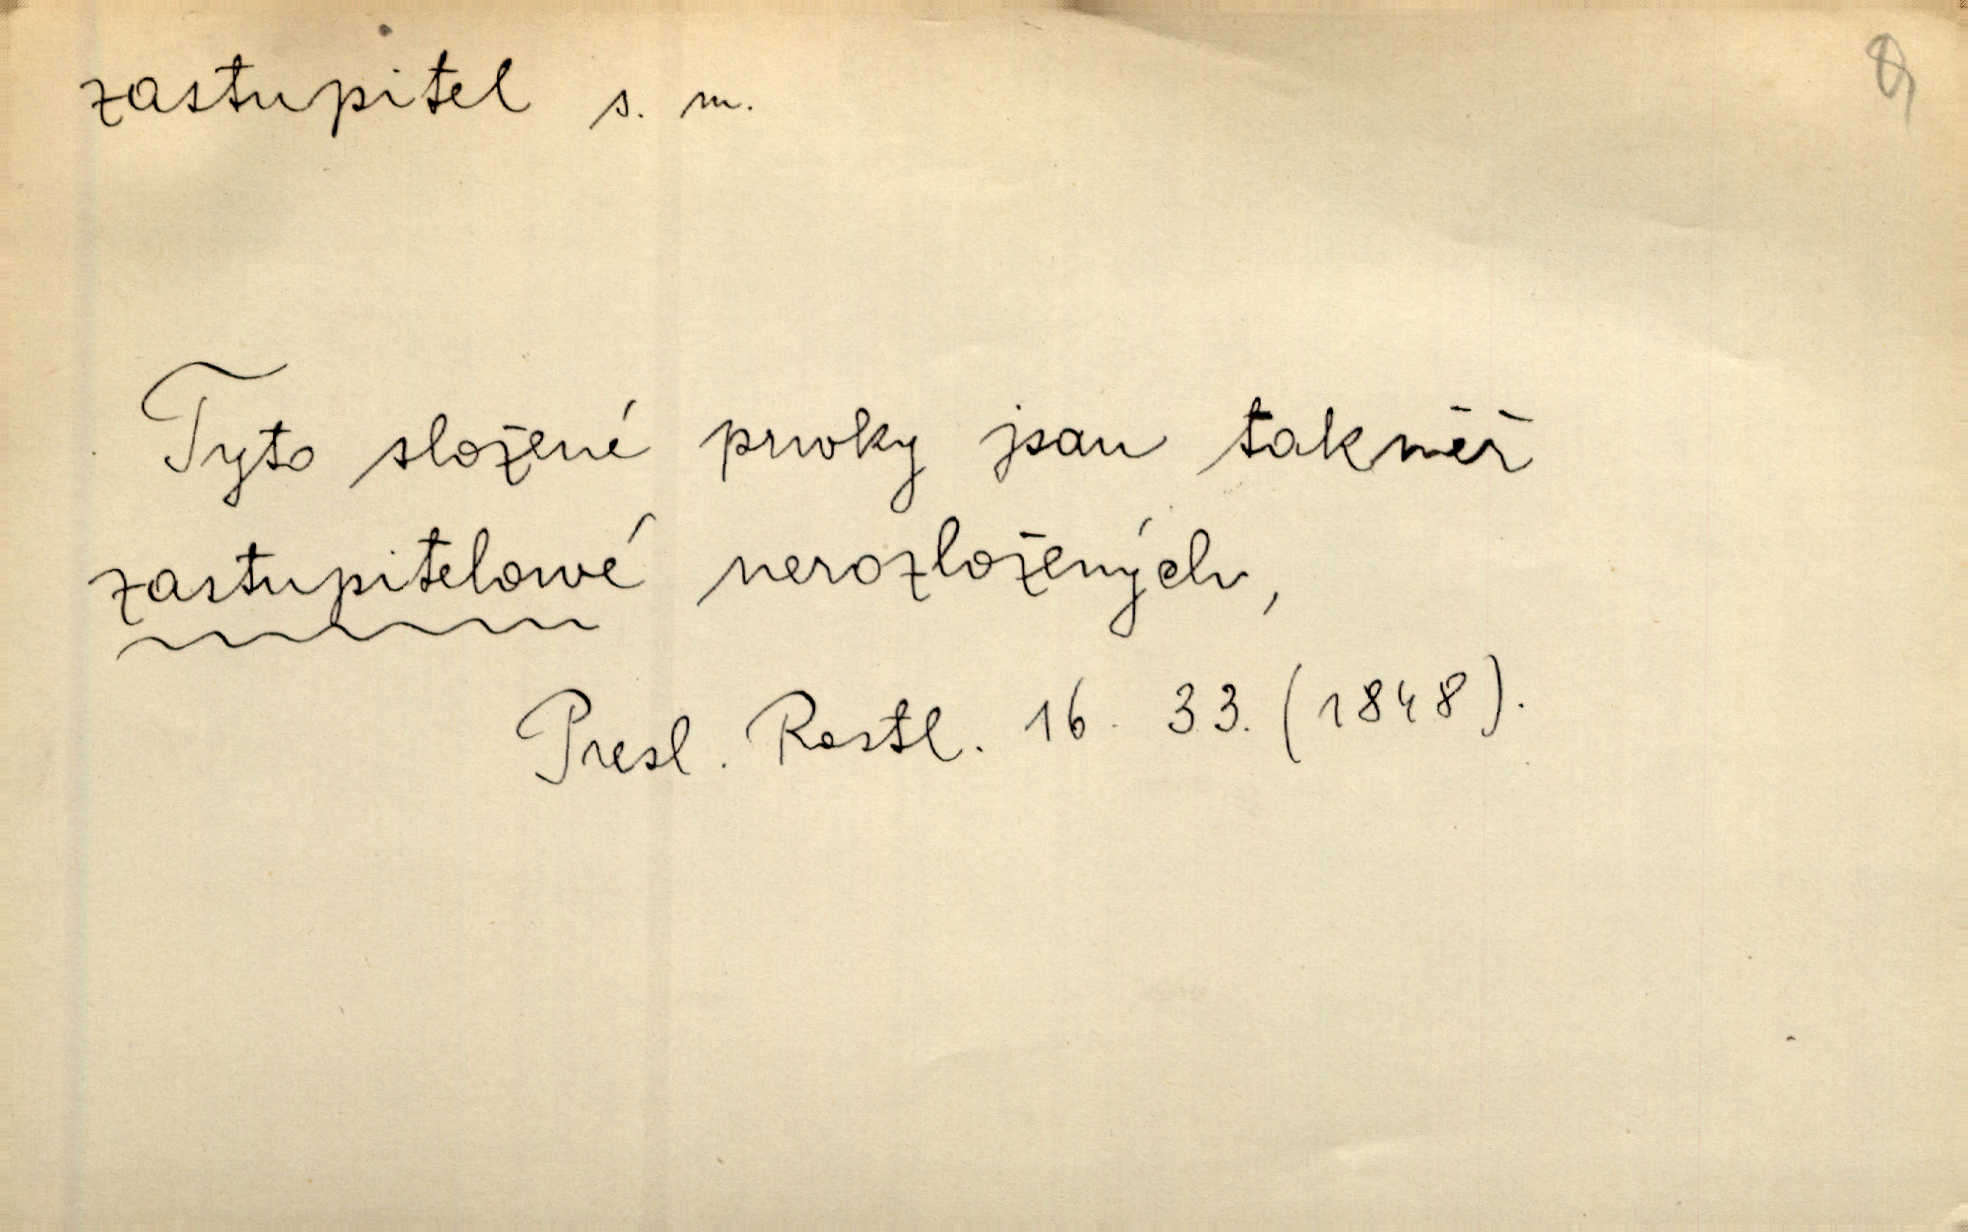 zastupitel s. m.
Tyto složené prwky jsau takměř
zastupitelowé nerozložených,
Presl. Rostl. 16. 33. (1848).